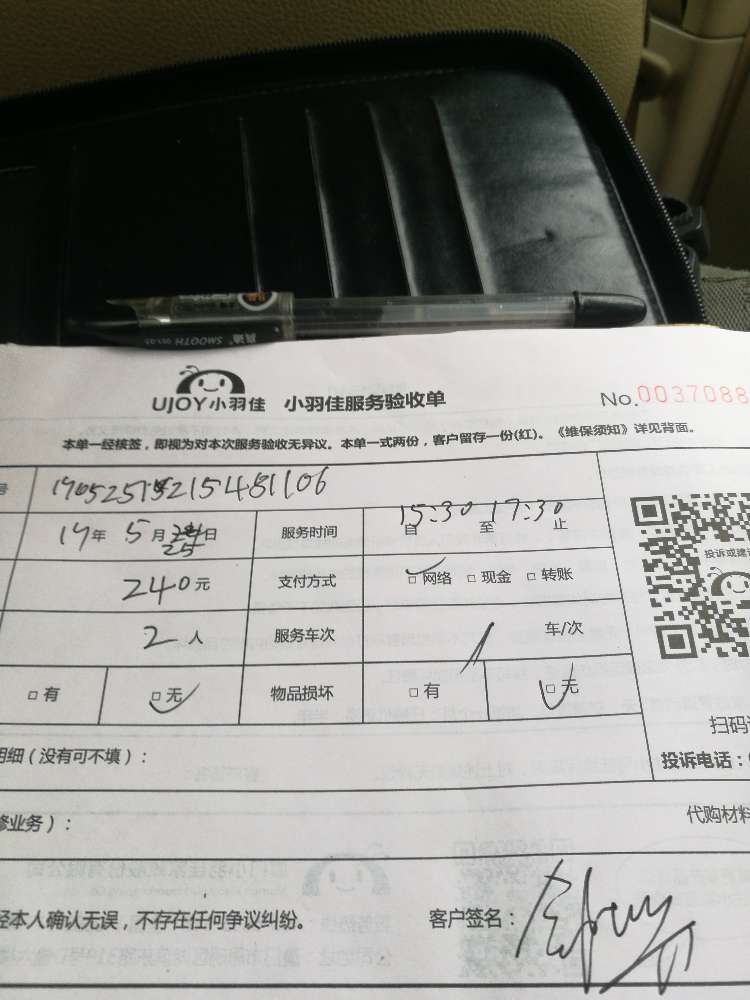 SMOOTH
UJOY小羽佳 小羽佳服务验收单 No.0037088
本单一经核签，即视为对本次服务验收无异议。本单一式两份，客户留存一份(红)。《维保须知》详见背面。
号
19年 5月25日 服务时间 15:30 自 至 17:30 止
投诉或建议
240元 支付方式 □网络 □现金 □转账
2人 服务车次 1 车/次
□有 □无 物品损坏 □有 □无
扫码
明细（没有可不填）： 投诉电话：
修业务）： 代购材料
经本人确认无误，不存在任何争议纠纷。 客户签名：